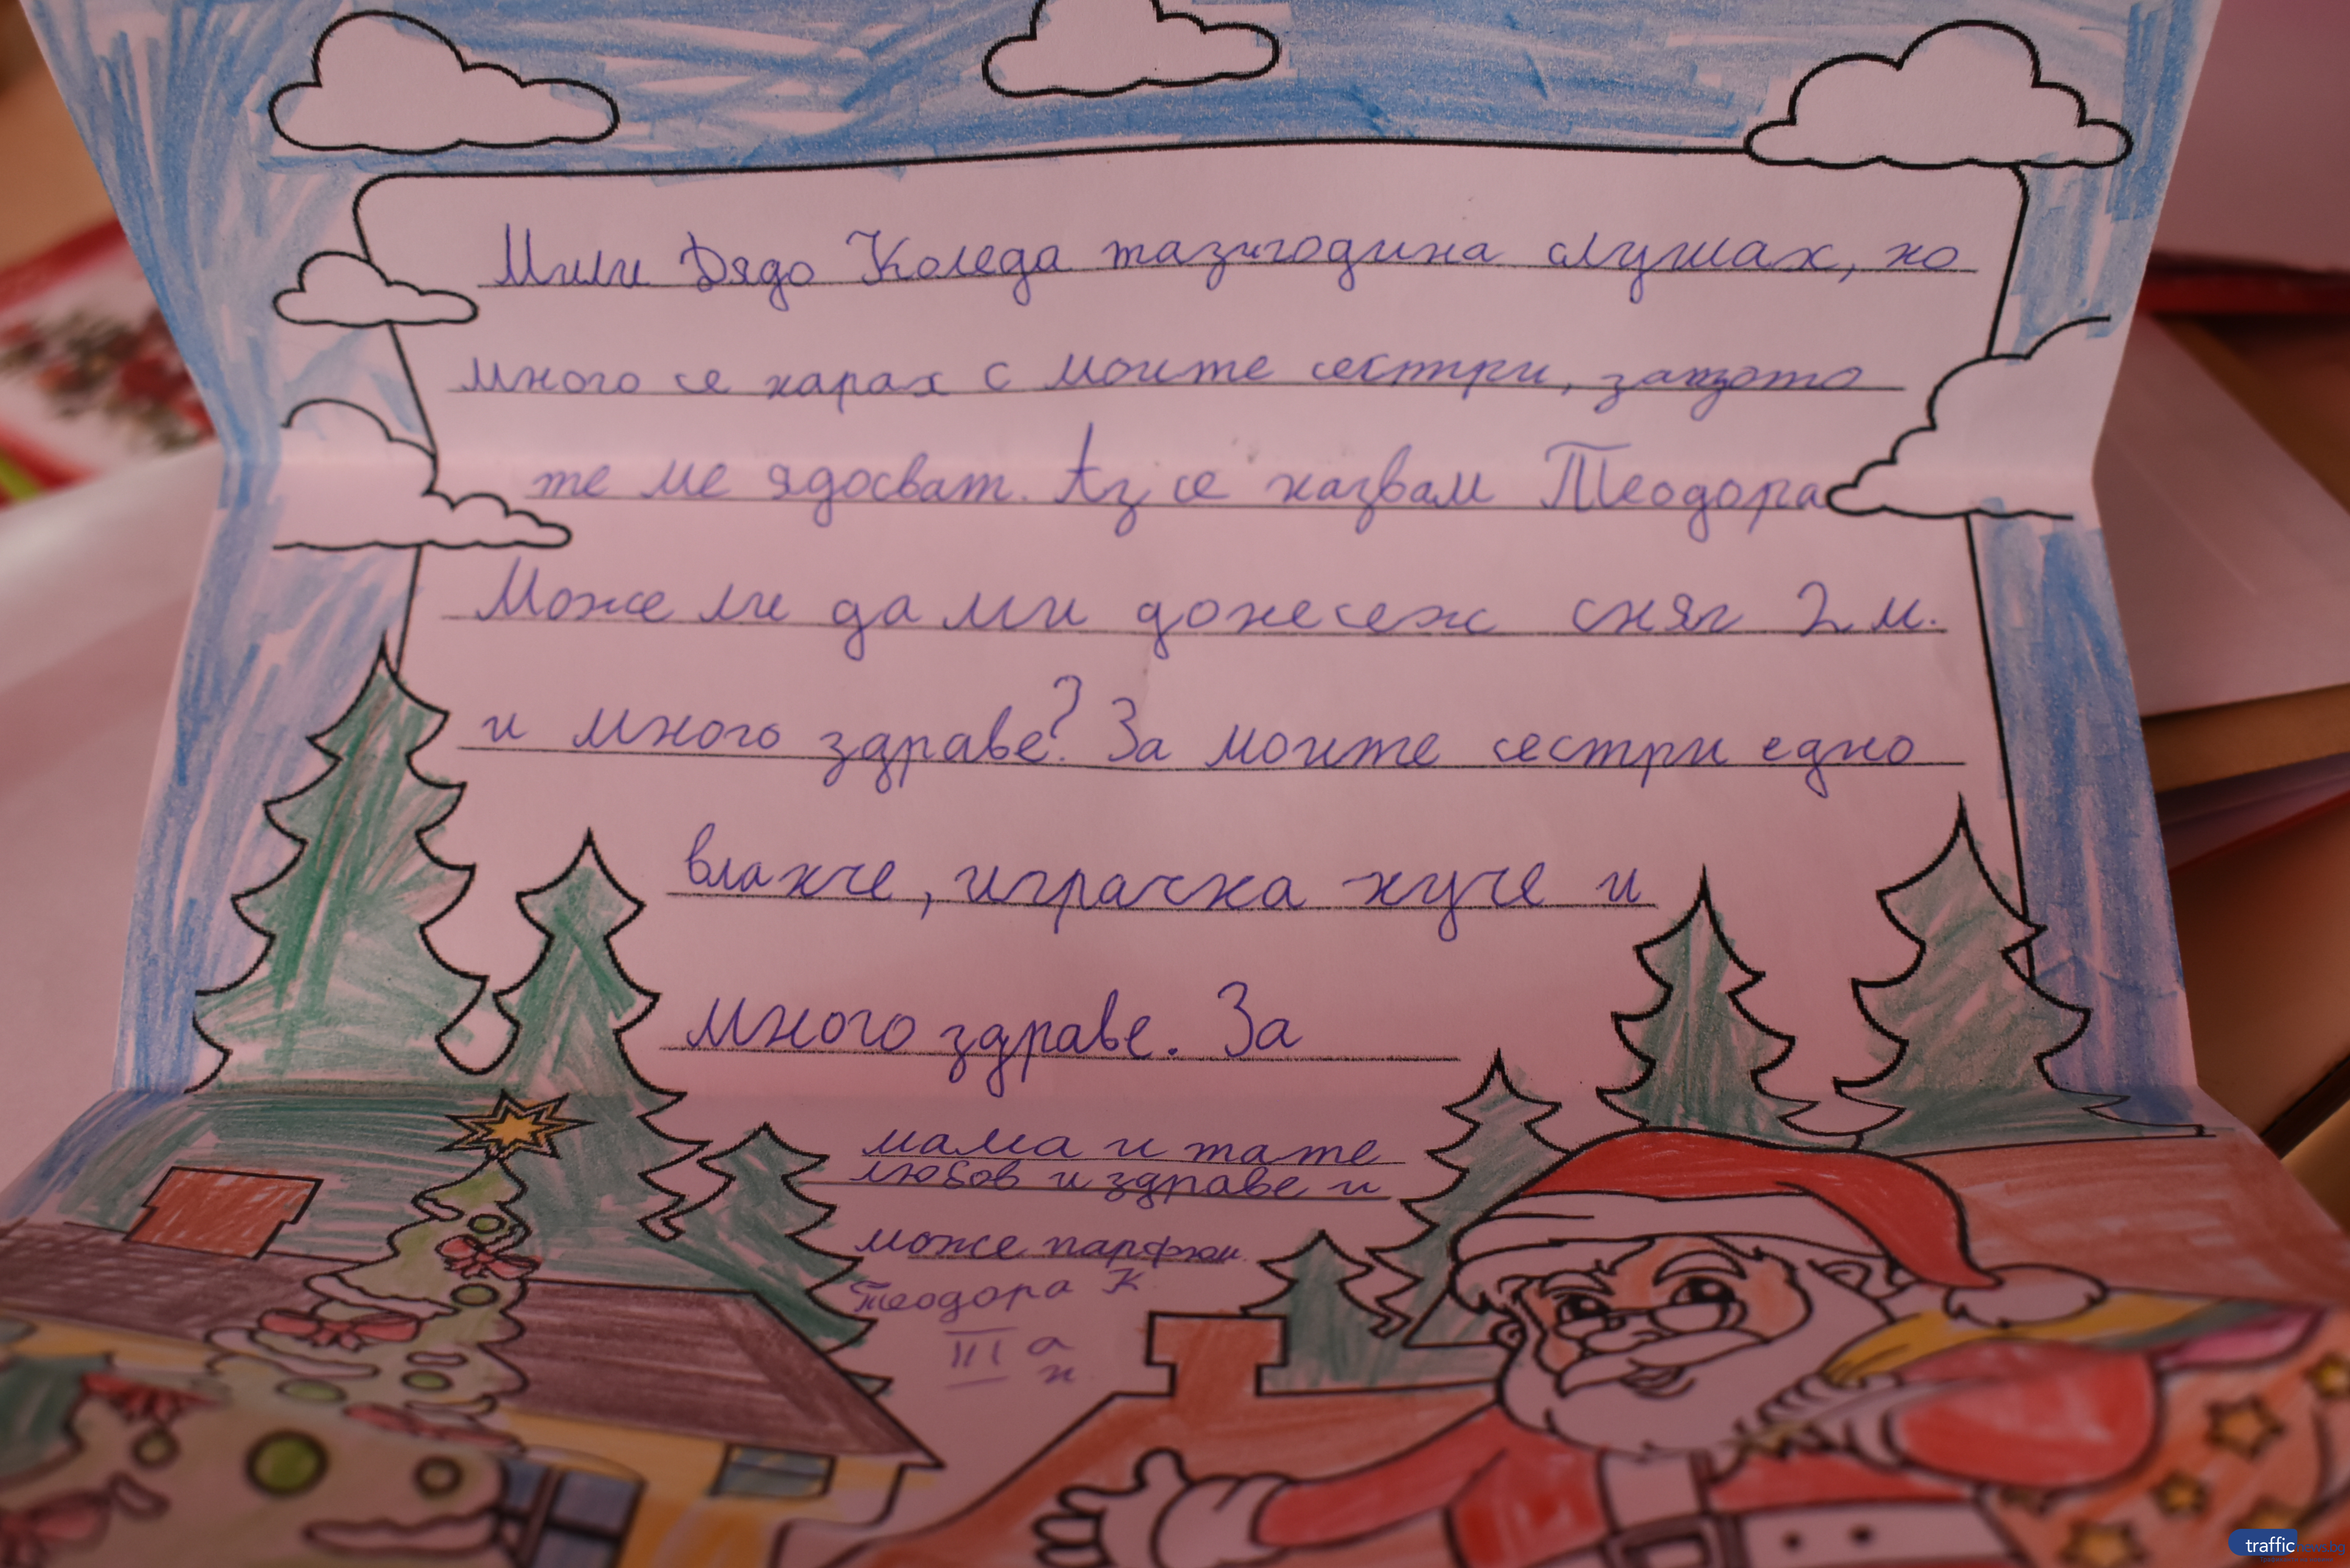 Мили Дядо Коледа тази годината слушах, но
много се карах с моите сестри, защото
те ме ядосват. Аз се казвам Теодора
Може ли да ми донесеж сняг 2 м.
и много здраве? За моите сестри едно
влакче, играчка куче и
много здраве. За
мама и тате
любов и здраве и
може парфюм
Теодора К
III а
к
traffic